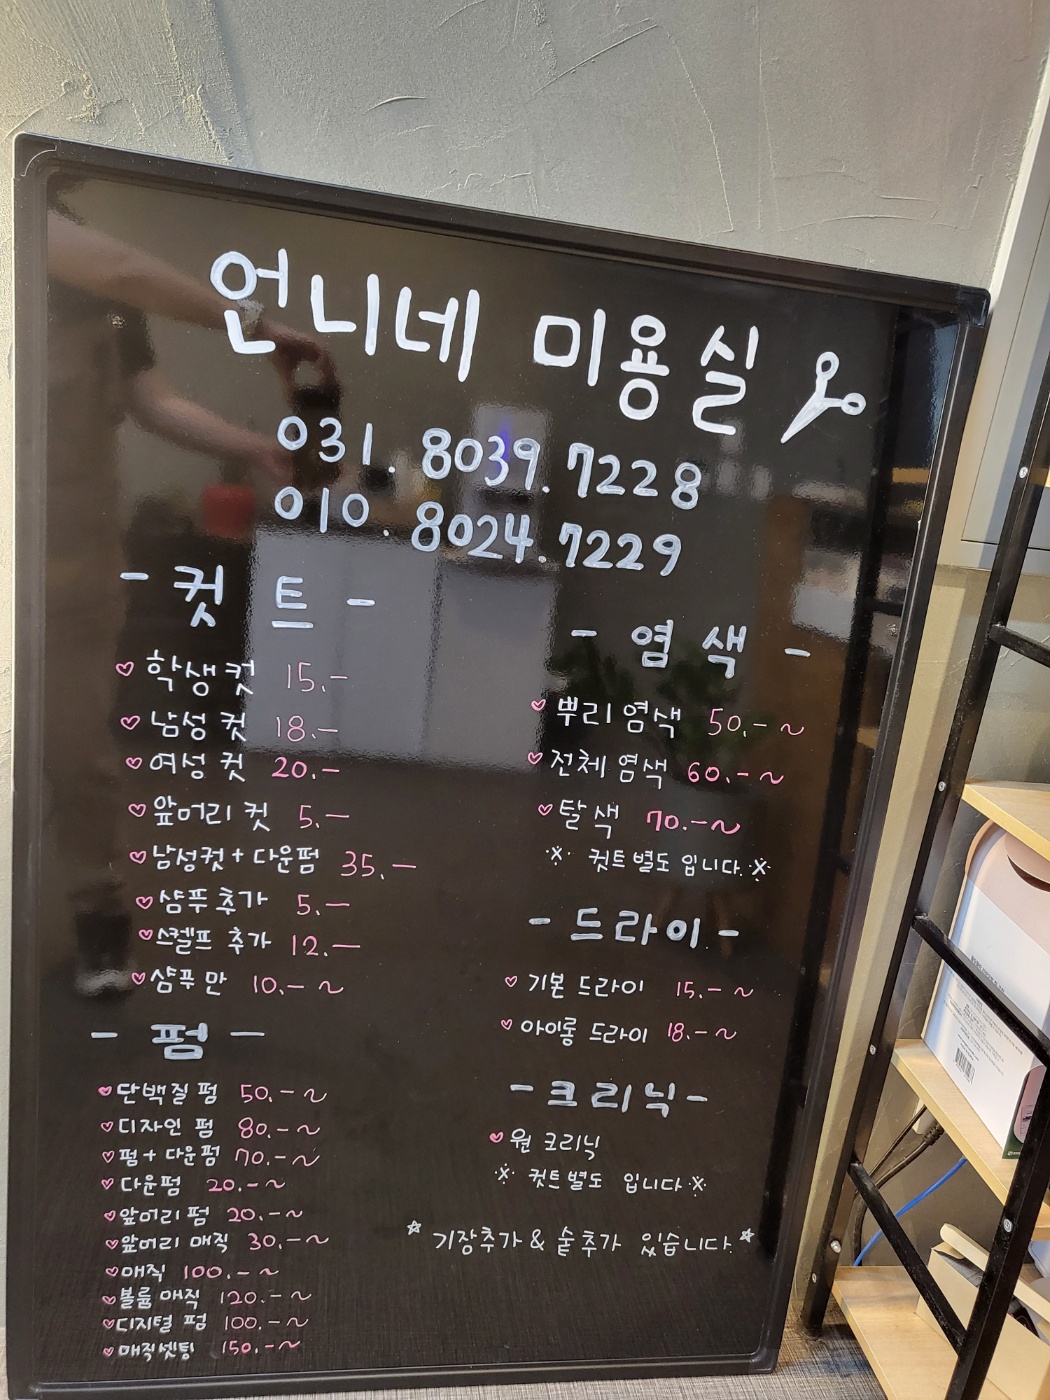 언니네 미용실
031. 8039. 7228
010. 8024. 7229
- 컷 트 -
♡ 학생 컷 15.-
♡ 남성 컷 18.-
♡ 여성 컷 20.-
♡ 앞머리 컷 5.-
♡ 남성컷 + 다운펌 35.-
♡ 샴푸 추가 5.-
♡ 스켈프 추가 12.-
♡ 샴푸 만 10.- ~
- 펌 -
♡ 단백질 펌 50.- ~
♡ 디자인 펌 80.- ~
♡ 펌 + 다운펌 70.- ~
♡ 다운펌 20.- ~
♡ 앞머리 펌 20.- ~
♡ 앞머리 매직 30.- ~
♡ 매직 100.- ~
♡ 볼륨 매직 120.- ~
♡ 디지털 펌 100.- ~
♡ 매직셋팅 150.- ~
- 염 색 -
♡ 뿌리 염색 50.- ~
♡ 전체 염색 60.- ~
♡ 탈색 70.- ~
※ 컷트 별도 입니다.※
- 드라이 -
♡ 기본 드라이 15.- ~
♡ 아이롱 드라이 18.- ~
- 크리닉 -
♡ 원 크리닉
※ 컷트 별도 입니다 ※
☆ 기장추가 & 숱추가 있습니다.☆